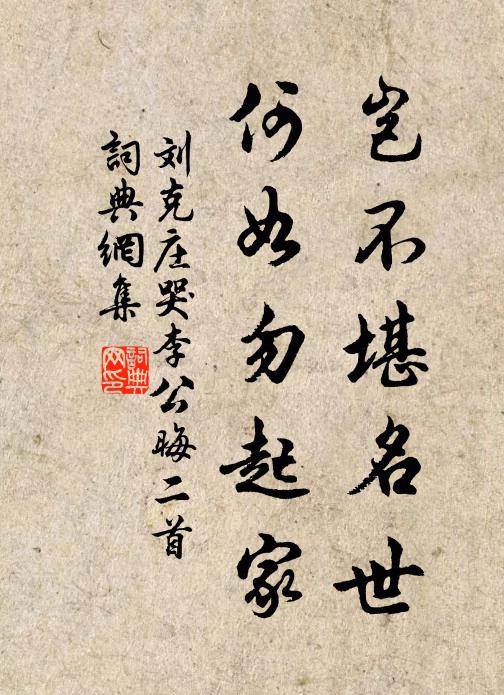 岂不堪名世
何如勿起家
刘克庄哭李公晦二首
詞典網集
詞典网印